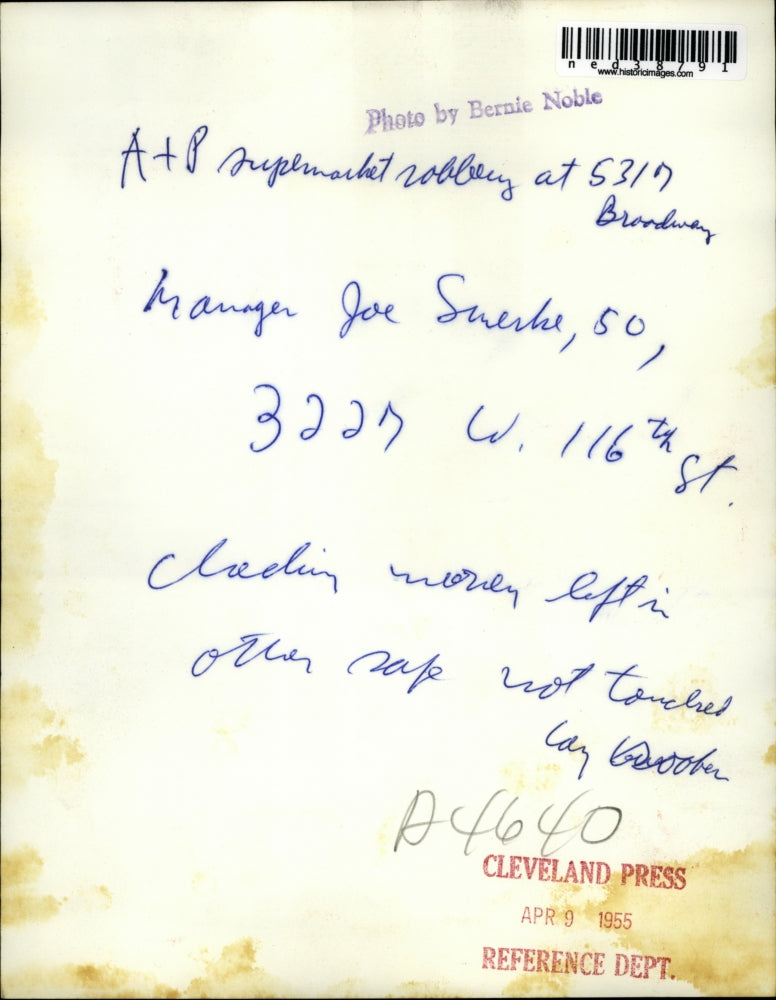 ned38791
www.historicimages.com
Photo by Bernie Noble
A+P supermarket robbery at 5317
Broadway
Manager Joe Swerke, 50,
3227 W. 116th
St.
checking money left in
other safe not touched
by
A4640
CLEVELAND PRESS
APR 9 1955
REFERENCE DEPT.